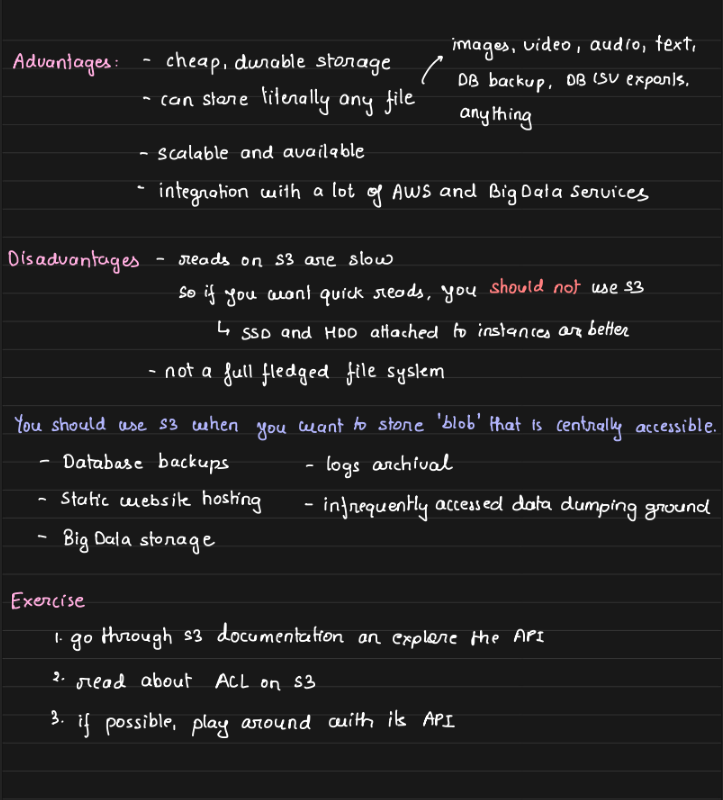 Advantages: - cheap, durable storage
- can store literally any file
images, video, audio, text,
DB backup, DB CSV exports,
anything
- scalable and available
- integration with a lot of AWS and Big Data Services
Disadvantages - reads on S3 are slow
So if you want quick reads, you should not use S3
↳ SSD and HDD attached to instances are better
- not a full fledged file system
You should use S3 when you want to store 'blob' that is centrally accessible.
- Database backups - logs archival
- Static website hosting - infrequently accessed data dumping ground
- Big Data storage
Exercise
1. go through S3 documentation an explore the API
2. read about ACL on S3
3. if possible, play around with its API